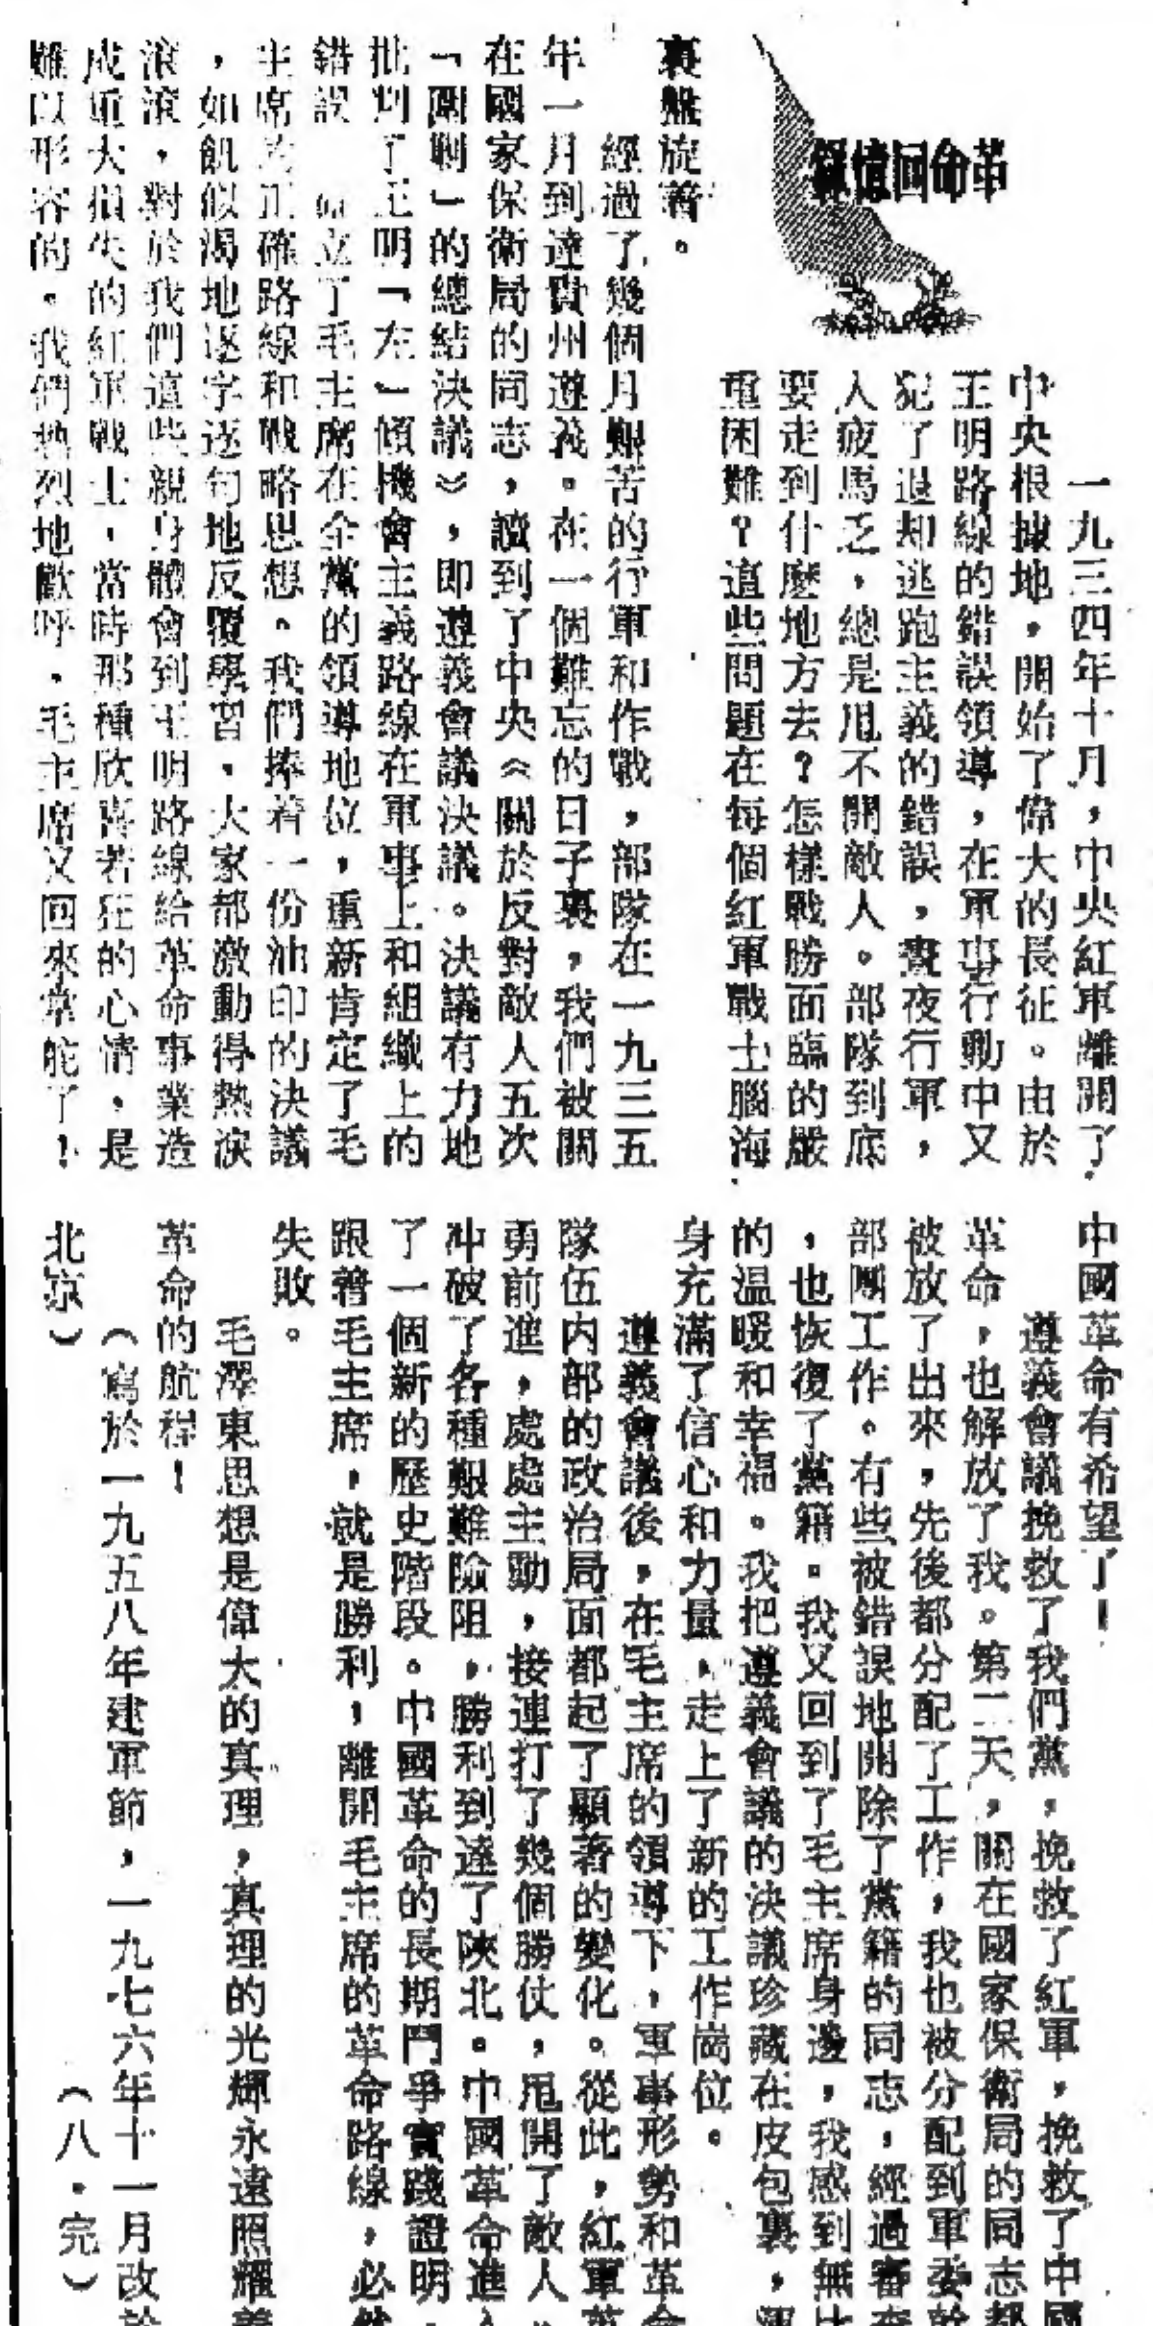 革命回憶錄
一九三四年十月，中央紅軍離開了
中央根據地，開始了偉大的長征。由於
王明路線的錯誤領導，在軍事行動中又
犯了退却逃跑主義的錯誤，晝夜行軍，
人疲馬乏，總是甩不開敵人。部隊到底
要走到什麼地方去？怎樣戰勝面臨的嚴
重困難？這些問題在每個紅軍戰士腦海
裏盤旋着。
經過了幾個月艱苦的行軍和作戰，部隊在一九三五
年一月到達貴州遵義。在一個難忘的日子裏，我們被關
在國家保衛局的同志，讀到了中央《關於反對敵人五次
「圍剿」的總結決議》，即遵義會議決議。決議有力地
批判了王明「左」傾機會主義路線在軍事上和組織上的
錯誤 立了毛主席在全黨的領導地位，重新肯定了毛
主席的正確路線和戰略思想。我們捧着一份油印的決議
，如飢似渴地逐字逐句地反覆學習，大家都激動得熱淚
滾滾，對於我們這些親身體會到王明路線給革命事業造
成重大損失的紅軍戰士，當時那種欣喜若狂的心情，是
難以形容的。我們熱烈地歡呼，毛主席又回來掌舵了！
中國革命有希望了！
遵義會議挽救了我們黨，挽救了紅軍，挽救了中國
革命，也解放了我。第二天，關在國家保衛局的同志都
被放了出來，先後都分配了工作，我也被分配到軍委幹
部團工作。有些被錯誤地開除了黨籍的同志，經過審查
，也恢復了黨籍。我又回到了毛主席身邊，我感到無比
的温暖和幸福。我把遵義會議的決議珍藏在皮包裏，渾
身充滿了信心和力量，走上了新的工作崗位。
遵義會議後，在毛主席的領導下，軍事形勢和革命
隊伍內部的政治局面都起了顯著的變化。從此，紅軍英
勇前進，處處主動，接連打了幾個勝仗，甩開了敵人，
冲破了各種艱難險阻，勝利到達了陝北。中國革命進入
了一個新的歷史階段。中國革命的長期鬥爭實踐證明，
跟着毛主席，就是勝利，離開毛主席的革命路線，必然
失敗。
毛澤東思想是偉大的真理，真理的光輝永遠照耀着
革命的航程！
（寫於一九五八年建軍節，一九七六年十一月改於
北京） （八・完）